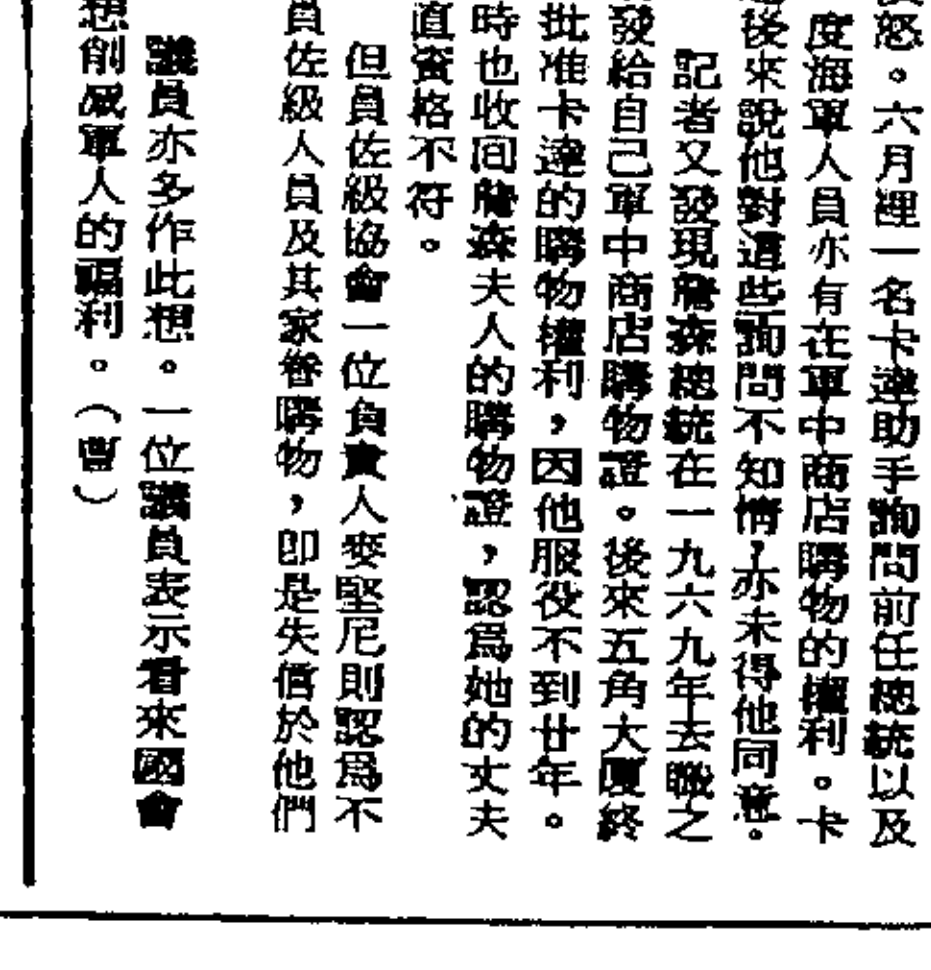 怒。六月裡一名卡達助手詢問前任總統以及
度海軍人員亦有在軍中商店購物的權利。卡
後來說他對這些詢問不知情,亦未得他同意。
記者又發現詹森總統在一九六九年去職之
發給自己軍中商店購物證。後來五角大廈終
批准卡達的購物權利,因他服役不到廿年。
時也收回詹森夫人的購物證,認爲她的丈夫
直資格不符。
但員佐級協會一位負責人麥堅尼則認爲不
員佐級人員及其家眷購物,即是失信於他們
議員亦多作此想。一位議員表示看來國會
想削减軍人的福利。(曹)